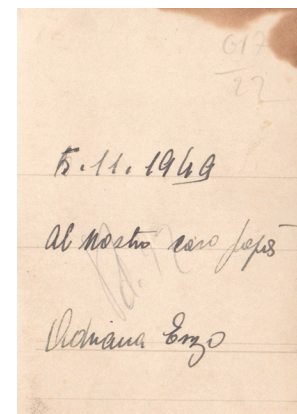 617
22
5.11.1949
Al nostro caro papà
Adriana Enzo